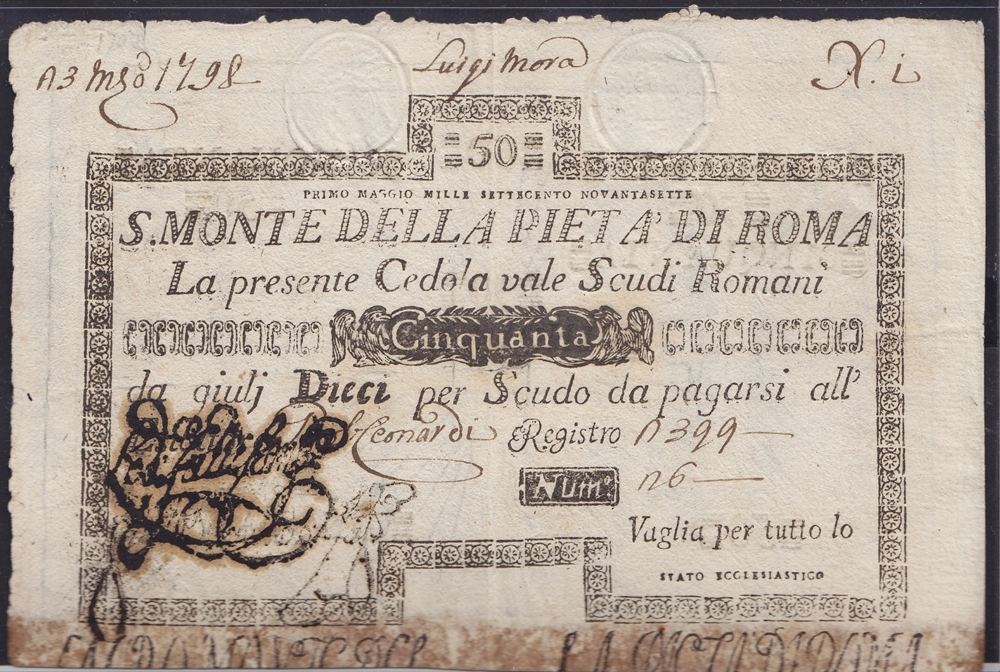 1798 Luigi Mora N. 1
50
PRIMO MAGGIO MILLE SETTECENTO NOVANTASETTE
S. MONTE DELLA PIETA' DI ROMA
La presente Cedola vale Scudi Romani
Cinquanta
da giulj Dieci per Scudo da pagarsi all'
Leonardi Registro n 399
Num. n 6
Vaglia per tutto lo
STATO ECCLESIASTICO